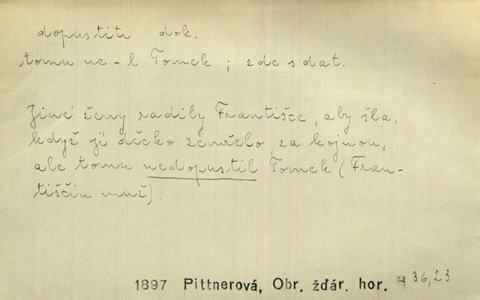 dopustiti dok.
tomu ne-l Tomek ; zde s dat.
Jiné ženy radily Františce, aby šla,
když jí děcko zemřelo, za kojnou,
ale tomu nedopustil Tomek (Fran-
tiščin muž).
1897 Pittnerová, Obr. žďár. hor. 36,23